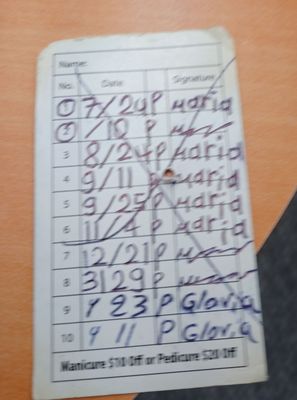 Name:
No. Date Signature
1 7/24 P Maria
2 /10 P
3 8/24 P Maria
4 9/11 P Maria
5 9/25 P Maria
6 11/4 P Maria
7 12/21 P
8 3129 P
9 23 P Gloria
10 11 P Gloria
Manicure $10 Off or Pedicure $20 Off